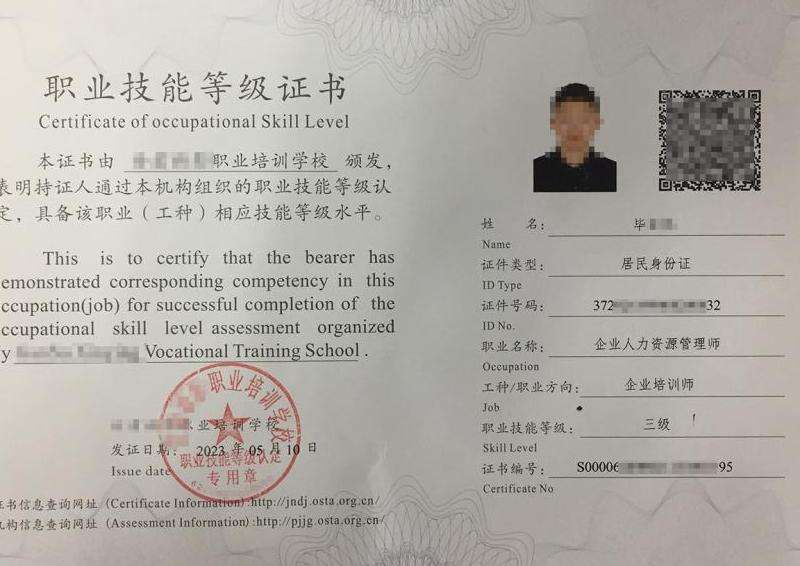 职业技能等级证书
Certificate of occupational Skill Level
本证书由 职业培训学校 颁发,
表明持证人通过本机构组织的职业技能等级认
定,具备该职业(工种)相应技能等级水平。
This is to certify that the bearer has
demonstrated corresponding competency in this
occupation(job) for successful completion of the
occupational skill level assessment organized
by Vocational Training School .
职业培训学校
业培训学校
发证日期: 2023 年 05 月 10 日
Issue date
职业技能等级认定
专用章
证书信息查询网址 (Certificate Information):http://jndj.osta.org.cn/
机构信息查询网址 (Assessment Information):http://pjjg.osta.org.cn/
姓 名: 毕
Name
证件类型: 居民身份证
ID Type
证件号码: 372 32
ID No.
职业名称: 企业人力资源管理师
Occupation
工种/职业方向: 企业培训师
Job
职业技能等级: 三级
Skill Level
证书编号: S00006 95
Certificate No